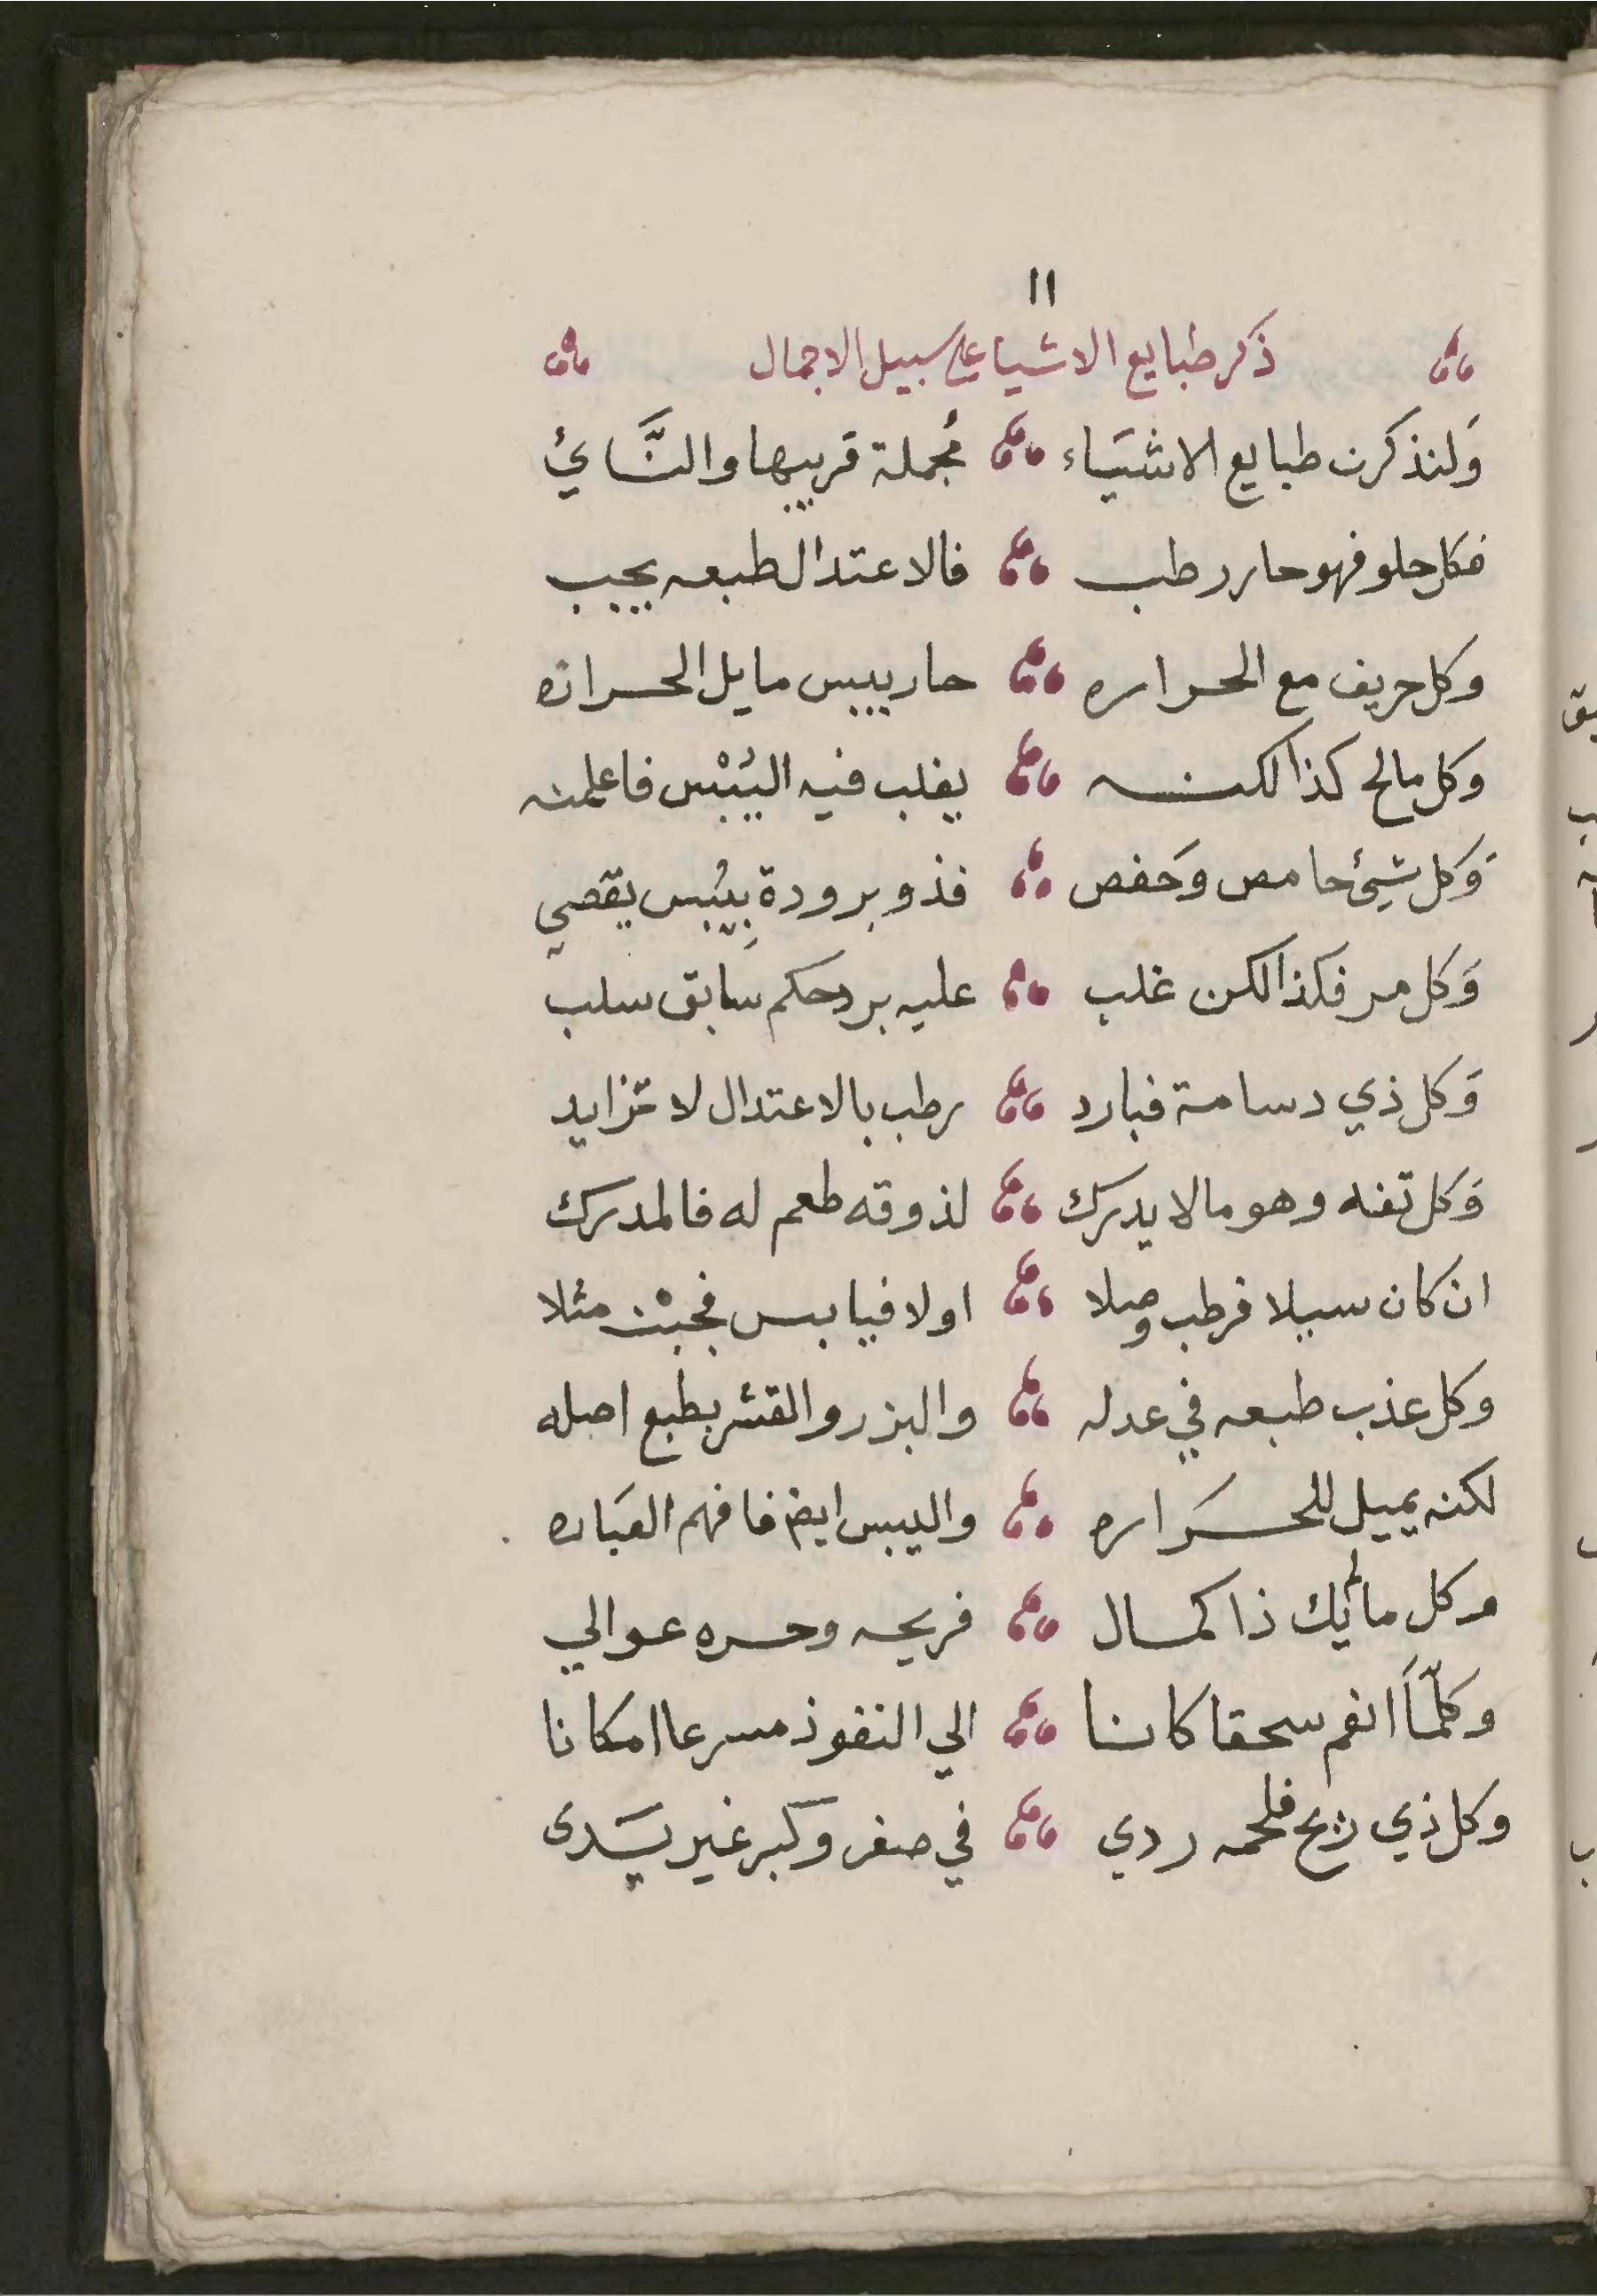 ١١
ذكر طبايع الاشيا علي سبيل الاجمال
وَلنذكرن طبايع الاشيَاء مُجملة قريبها والنَّائيُ
فكل حلو فهو حار رطب فالاعتدال طبعه يجب
وكل حريف مع الحراره حار يبيس مايل الحراره
وكل مالح كذا لكنه يغلب فيه اليُبْس فاعلمنه
وَكل شيئ حامص وَحفص فذو برودة بِيُبس يقصي
وَكل مر فكذا لكن غلب عليه برد حكم سابق سلب
وَكل ذي دسامة فبارد رطب بالاعتدال لا تزايد
وَكل تفه وهو مالا يدرك لذوقه طعم له فالمدرك
ان كان سيلا فرطب وصلا اولا فيابس فجبْن مثلا
وكل عذب طبعه في عدله والبزر والقشر بطبع اصله
لكنه يميل للحَراره واليبس ايض فافهم العبَاره
وكل مالم يك ذا كمال فريحه وحره عوالي
وكلّمَا انعم سحقا كانا الي النفوذ مسرعا امكانا
وكل ذي ريح فلحمه ردي في صغر وكبر غير يَسَدى